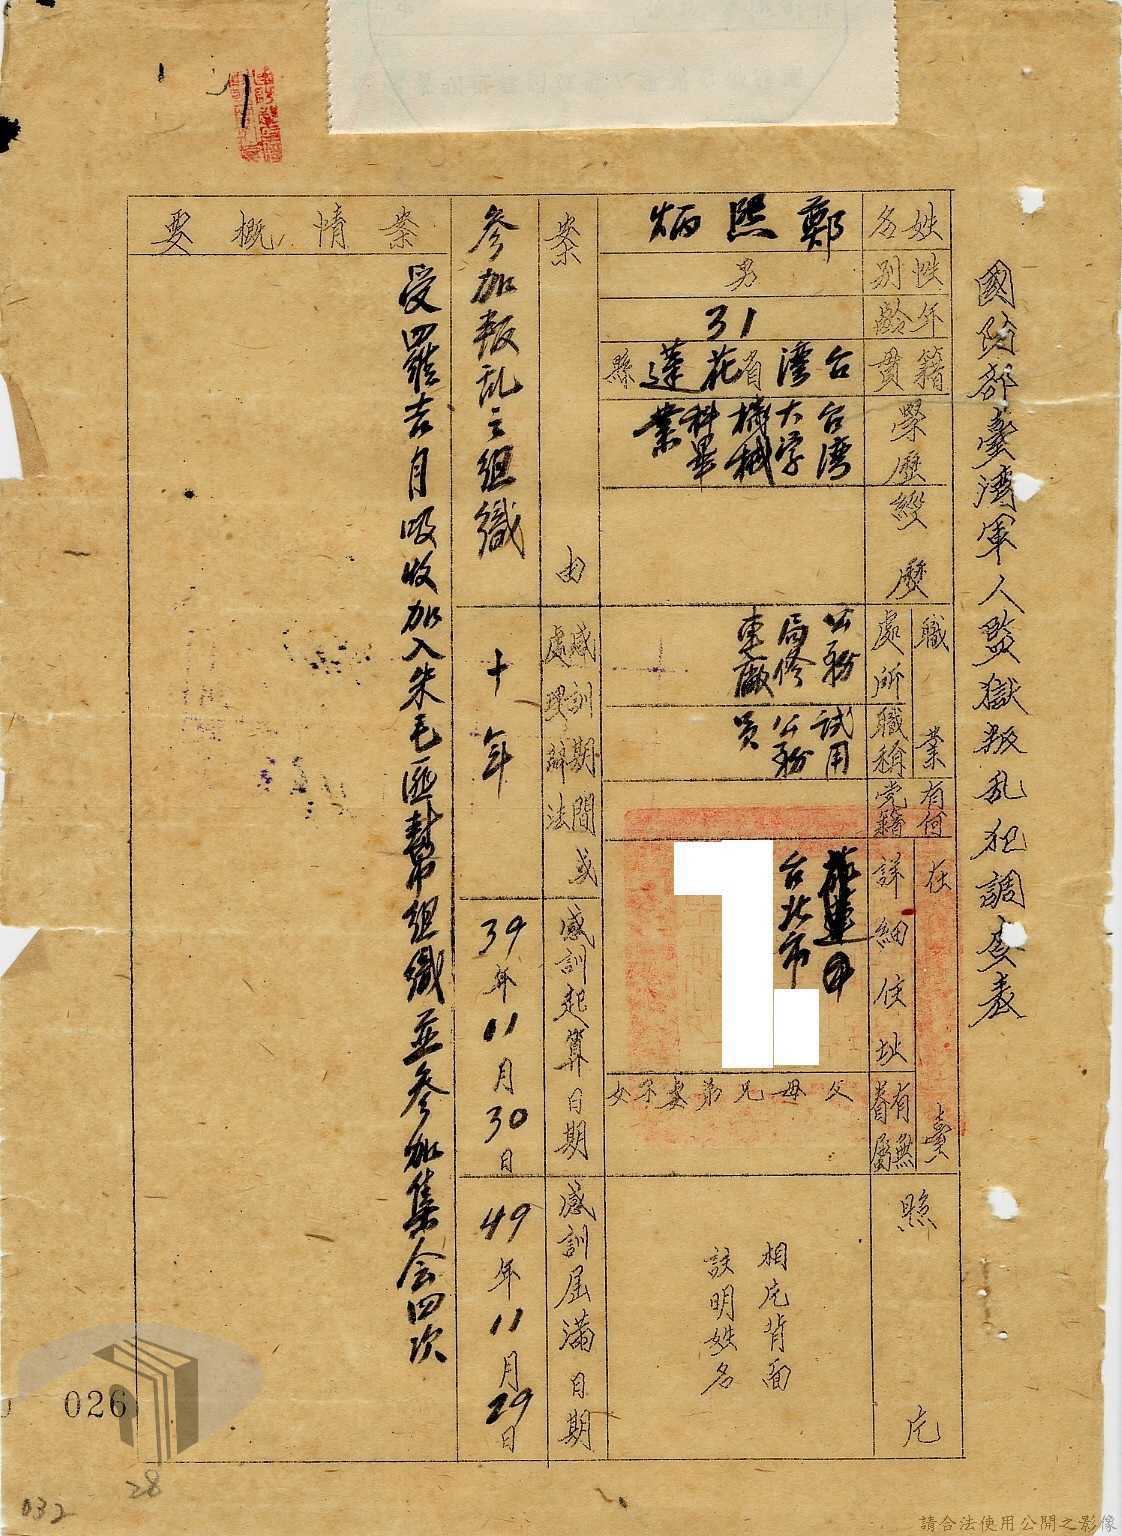 國防部臺灣軍人監獄叛乱犯調查表
姓名
鄭熙炳
性別
男
年齡
31
籍貫
台灣省花蓮縣
學歷
台灣大学機械科畢業
經歷
職業
處所
公務局修車廠
職稱
試用公務員
有何党籍
在臺
詳細住址
台北市
有無眷屬
父母兄弟妻子女
照片
相片背面
註明姓名
案由
參加叛乱之組織
感訓期間或
處理辦法
十年
感訓起算日期
39年11月30日
感訓屆滿日期
49年11月29日
案情概要
受羅吉月吸收加入朱毛匪幫組織並參加集会四次
026
28
032
請合法使用公開之影像